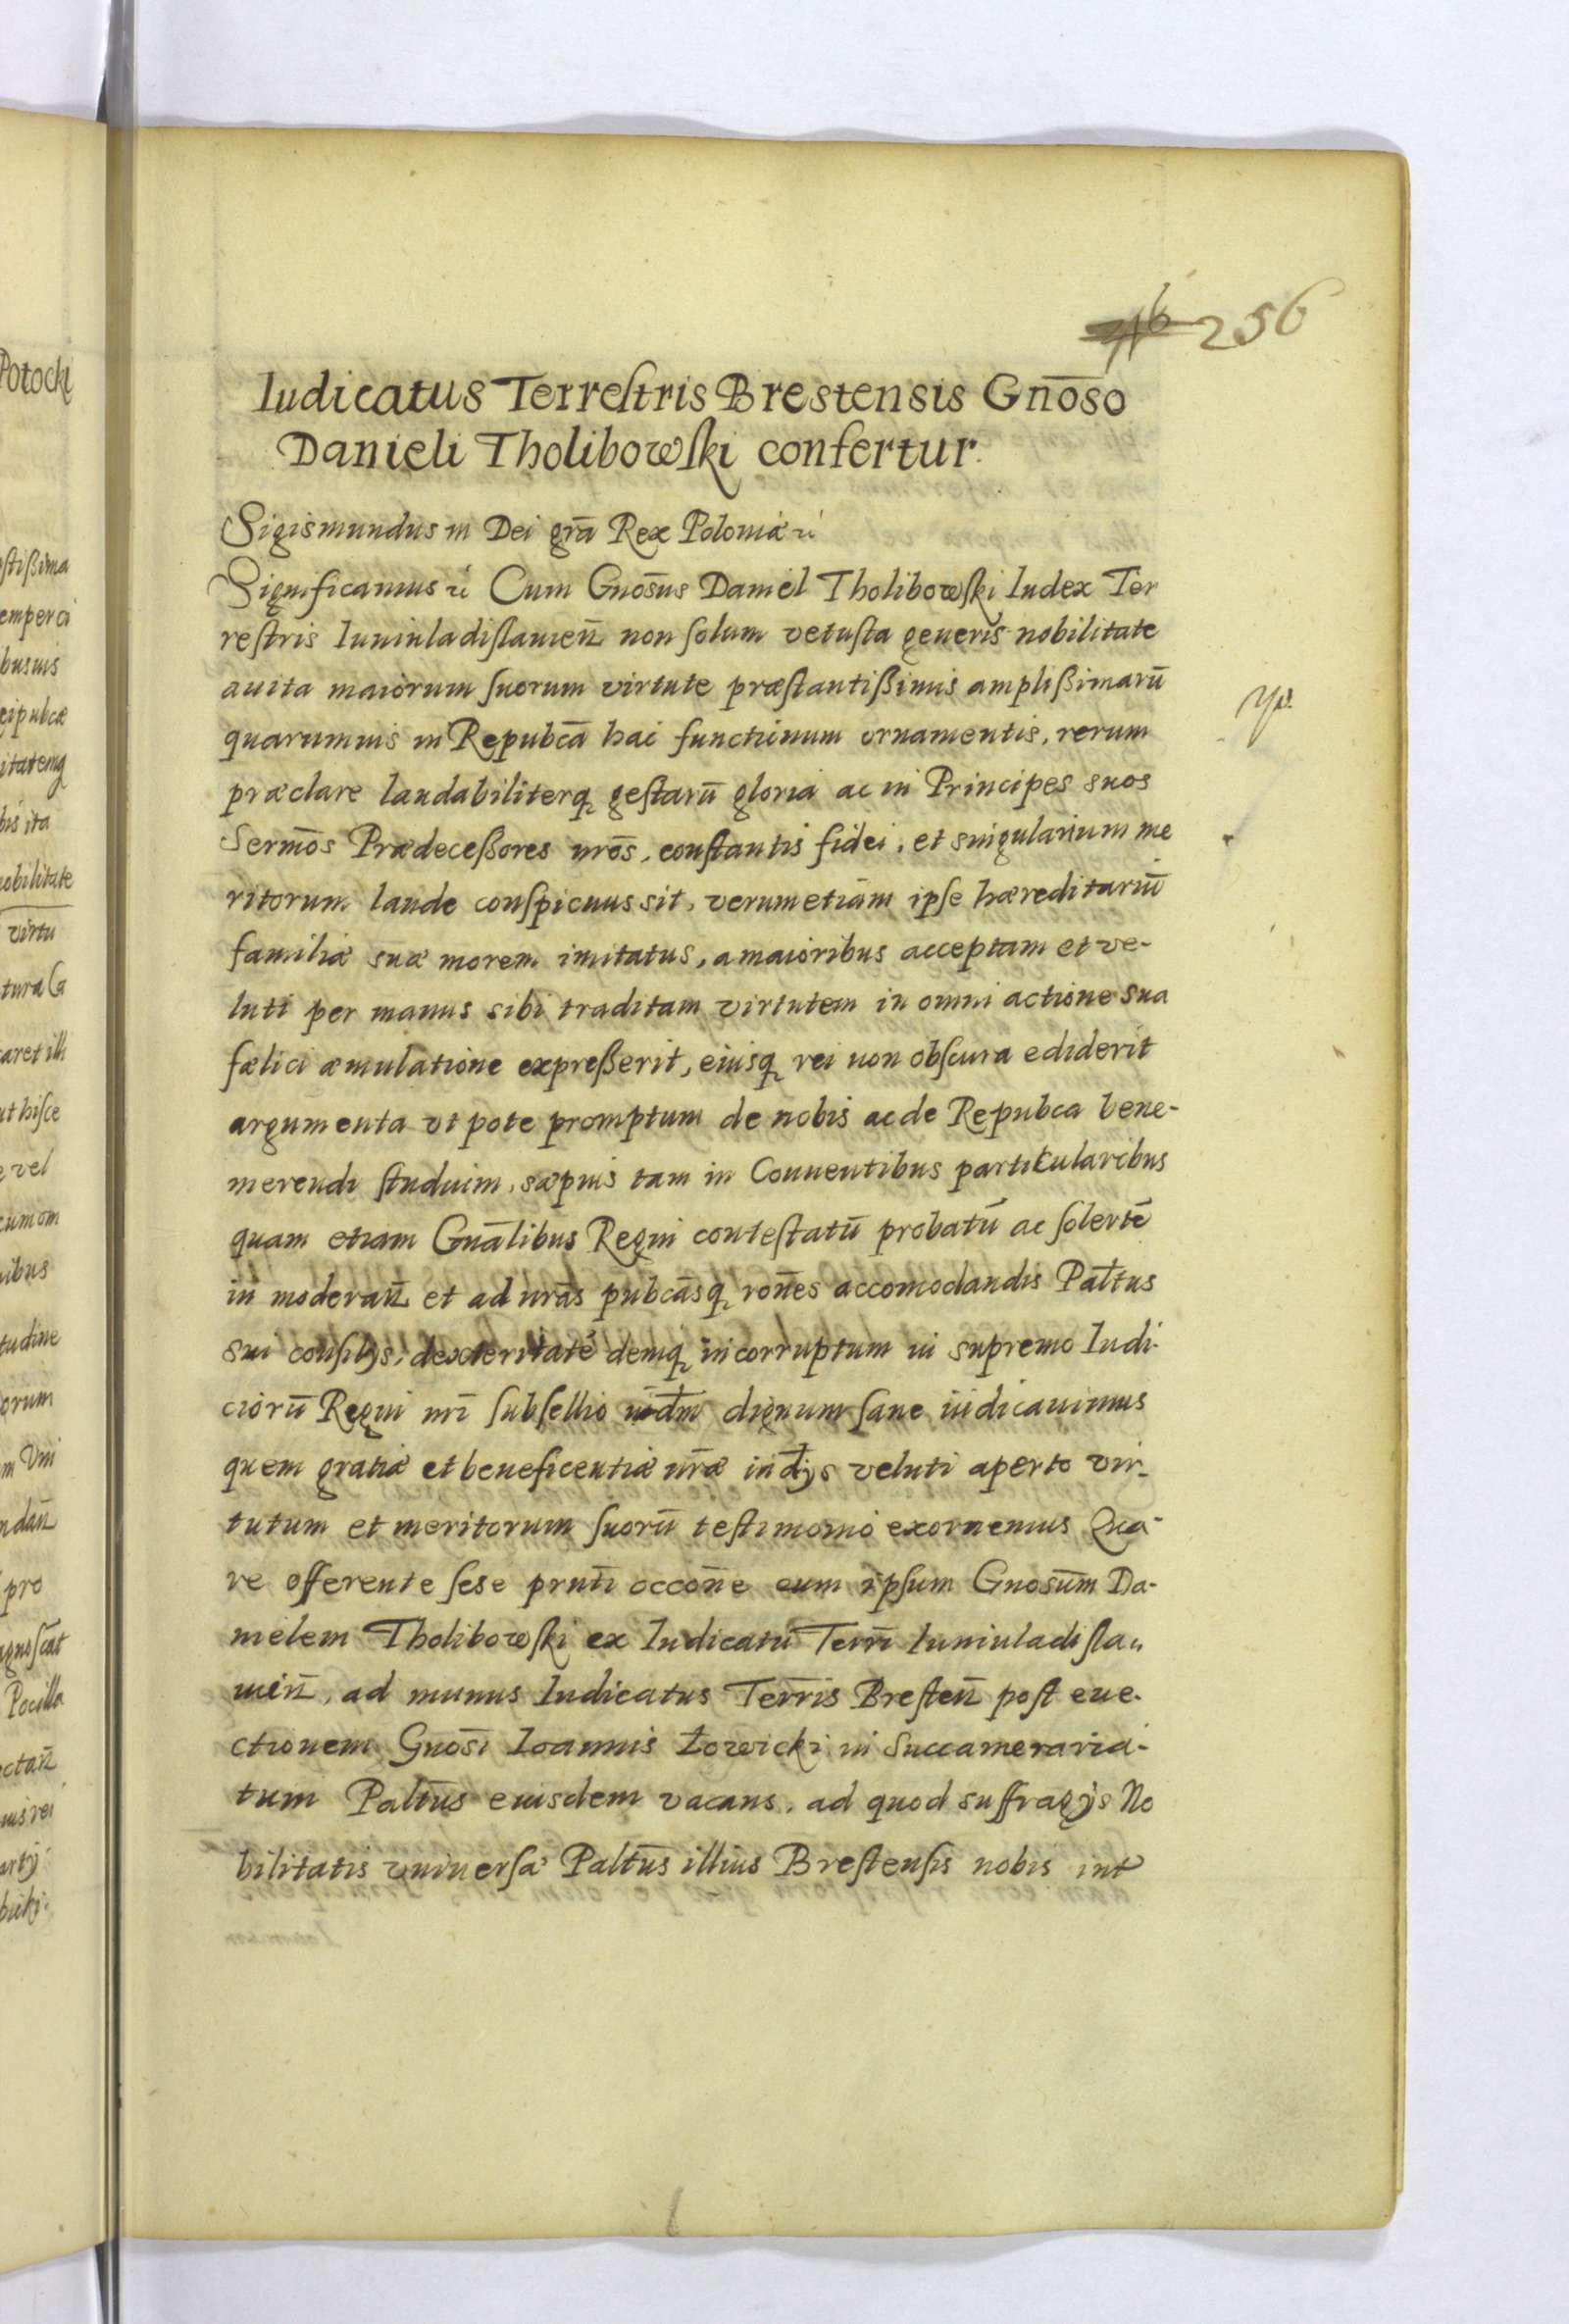 256
Iudicatus Terrestris Brestensis Gnōso
Danieli Tholibowski confertur.
Sigismundus III Dei grā Rex Poloniæ
Significamus Cum Gnosūs Daniel Tholibowski Iudex Ter
restris Iuniuladislauien̄ non solum vetusta generis nobilitate
auita maiorum suorum virtute præstantißimis amplißimarū
quarumuis in Repubcā hac functionum ornamentis, rerum
præclare laudabiliterq gestarū gloria ac in Principes suos
Sermōs Prædeceßores nrōs, constantis fidei, et singularium me
ritorum laude conspicuus sit, verumetiam ipse hæreditariū
familiæ suæ morem imitatus, a maioribus acceptam et ve-
luti per manus sibi traditam virtutem in omni actione sua
fælici æmulatione expreßerit, eiusq rei non obscura ediderit
argumenta vt pote promptum de nobis ac de Repubca bene-
merendi studium, sæpius tam in Conuentibus particularibus
quam etiam Gnālibus Regni contestatū probatū ac solertē
in moderan̄ et ad nrās pubcāsq ronēs accomodandis Paltus
sui consilys, dexteritatē deniq incorruptum in supremo Iudi-
ciorū Regni nrī subsellio dignum sane iudicauimus
quem gratiæ et beneficentiæ nrǣ indys veluti aperto vir-
tutum et meritorum suorū testimonio exornemus Qua-
re offerente sese prnti occōne eum ipsum Gnosūm Da-
nielem Tholibowski ex Iudicatu Terrī Iuniuladisla
uien̄, ad munus Iudicatus Terrīs Bresten̄ post eue-
ctionem Gnosī Ioannis Łowicki in Succameraria-
tum Paltūs eiusdem vacans, ad quod suffragys No
bilitatis vniuersæ Paltūs illius Brestensis nobis int